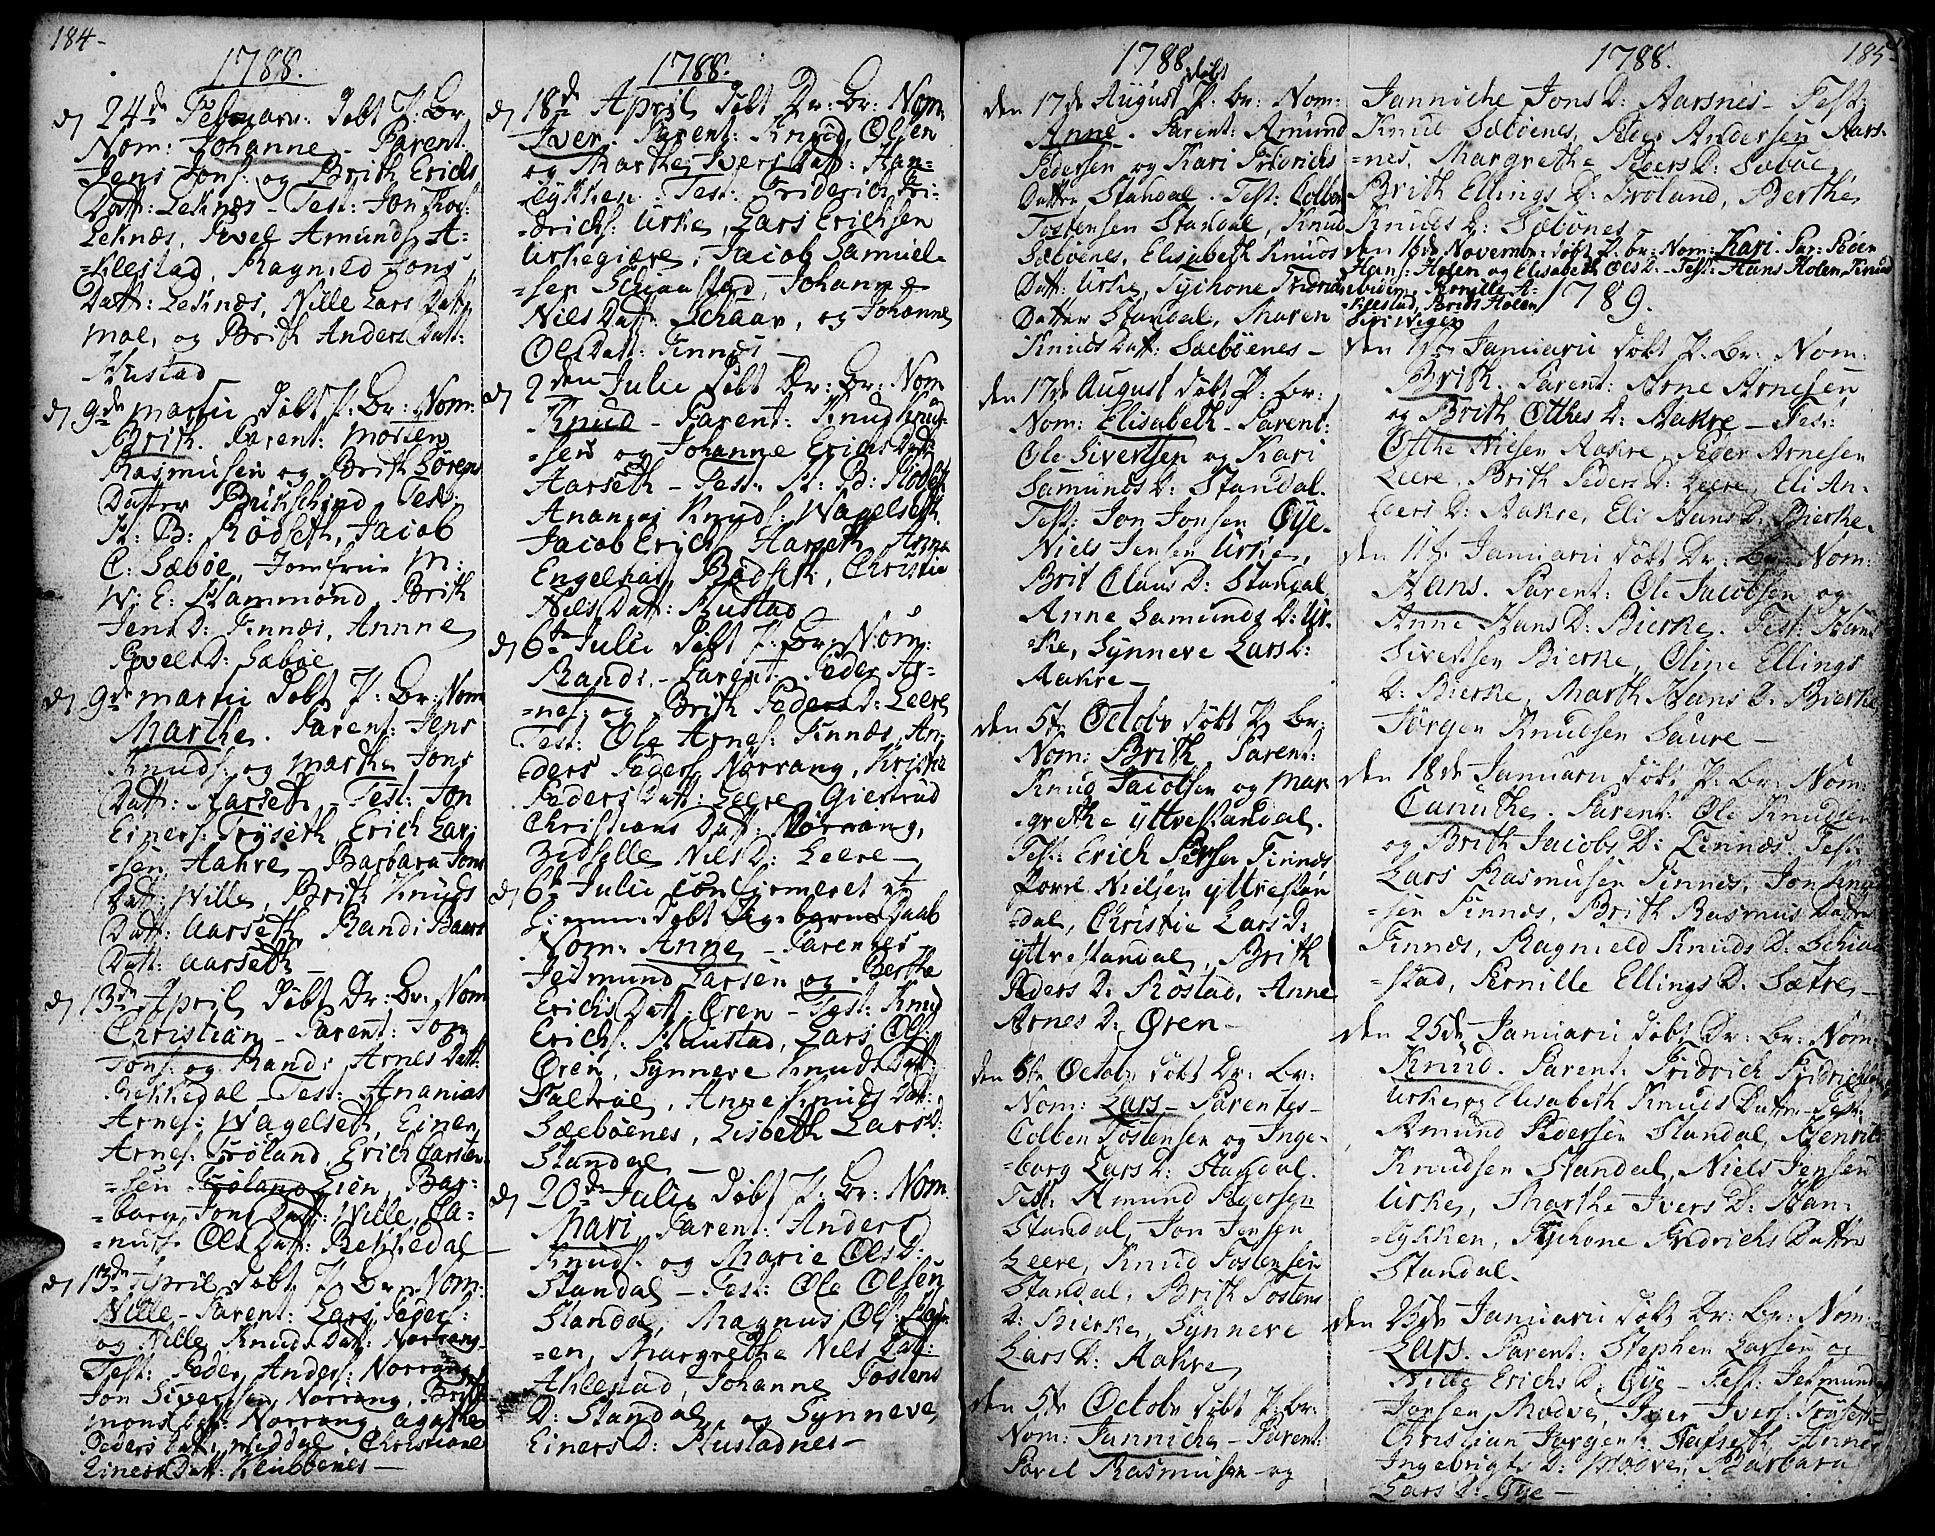 184-
1788.
d 24de Februarii døbt P: Br:
Nom: Johanne - Parent:
Jens Jons: og Brith Erichs
Datt: Leknæs - Test: Jon
Leknæs, Povel Amunds: A-
=klestad, Ragnild Jons
Datt: Leknæs, Nille Lars Datt
moe, og Brith Anders Datt:
Hustad
d 9de martii døbt P: Br: Nom:
Brith. Parent: Morten
Rasmusen og Brith Sørens
Datter Test:
H: B: Rødseth, Jacob
C: Sæbøe, Jomfrue M:
W: E: Hammond, Brith
Jens D: Finnes, Annne
Povels D: Sæbøe
d 9de martii døbt P: Br: Nom
Marthe. Parent: Jens
Knuds: og Marthe Jons
Datt: Aarseth - Test: Jon
Einers: Trÿseth, Erich Lar
=sen Aakre, Barbara Jons
Datt: Wille, Brith Knuds
Datt: Aarseth, Randi Baars
Datt: Aarseth -
d 13de April døbt Dr: Br: Nom
Christian - Parent: Jon
Jons: og Randi Arnes Datt:
Rekkedal - Test: Ananias
Arnes: Wagelseth, Einer
Arnes: Frøland, Erich Carsten
=sen Frøland Lien, Bar-
=bara Jons Datt: Wille, Ca-
=nutte Ols Datt: Rekkedal -
d 13de April døbt P: Br: Nom:
Nille - Parent: Lars Peders:
og Nille Knuds Datt: Norrang
Test: Peder Anders: Norrang,
Jon Siverssen Norrang, Brithe
mons Datt: Norrang, Agathe
Peders Datt: middal, Christiane
Einers Datt: Klubbenes -
1788.
d 18de April døbt Dr: Br: Nom
Iver. Parent: Knud Olsen
og Marthe Ivers Datt: Han-
=dykken - Test: Friderich Fri-
=drichs: Urke, Lars Erichsen
Urkegiære, Jacob Samuel-
=sen Skaarstad, Johanne
Niels Datt: Schaar, og Johanne
Ols Datt: Finnes -
d 2den Julii døbt Dr: Br: Nom
Knud - Parent: Knud Knud-
=sen og Johanne Erichs Datt
Aarseth - Test: H: B: Rødseth
Ananias Knuds: Wagelseth,
Jacob Erichs: Aarseth, Anna
Engelhar Rødseth, Christie
Niels Datt: Hustad
d 6te Julii døbt P: Br: Nom:
Randi - Parent: Peder Ar-
=nes: og Brith Peders D: Leere
Test: Ole Arnes: Finnes, An-
ders Peders: Norrang, Kristie
Peders Datt: Leere, Giertrud
Christians Datt: Norrang,
Zidselle Niels D: Leere -
d 6te Julii confirmeret et
hiemme døbt Pige barns Daab
Nom: Anne - Parentes
Jedmund Larsen og Berthe
Erichs Datt: Øren - Test: Knud
Erichs: Maustad, Lars Ols:
Øren, Synneve Knuds Datt:
Saltrøe, Anne Knuds Datt:
Sæbøenes, Lisbeth Lars D:
Standal -
d 20de Julii døbt P: Br: Nom
Mari. Parent: Anders
Knuds: og Marie Ols D:
Standal - Test: Ole Olsen
Standal, Magnus Ols:
=en, Margrethe Niels Datt:
Aklestad, Johanne Tostens
D: Standal, og Synneve
Einers D: Hustadnes -
1788.
den 17de August døbt P: Br: Nom:
Anne. Parent: Amund
Pedersen og Kari Fridrichs
Datter Standal - Test: Colben
Tostensen Standal, Knud
Sæbøenes, Elisabeth Knuds
Datt: Urke, Tychone Fridrichs
Datter Standal, Maren
Knuds Datt: Sæbøenes -
den 17de August døbt P: Br:
Nom: Elisabeth - Parent:
Ole Sivertsen og Kari
Samunds D: Standal.
Test: Jon Jonsen Øÿe.
Niels Jensen Urke,
Brit Claus D: Standal,
Anne Samunds D: Ur-
=ke, Synneve Lars D:
Aakre -
den 5te Octobr døbt P: Br:
Nom: Brith, Parent:
Knud Jacobsen og Mar-
=grethe ÿttrestandal.
Test: Erich Persen Finnes
Povel Nielsen ÿttrestan
=dal, Christie Lars D:
ÿttrestandal, Brith
Peders D: Rostad, Anne
Arnes D: Øren -
den 5te Octobr døbt Dr: Br:
Nom: Lars - Parentes -
Colben Tostensen og Inge-
=borg Lars D: Standal.
Test: Amund Pedersen
Standal, Jon Jensen
Leere, Knud Tostensen
Standal, Brith Tostens
D: Bierke, Synneve
Lars D: Aakre
den 5te Octobr døbt P: Br:
Nom: Jannicke - Parent:
Povel Rasmusen og
1788.
185
Janniche Jons D: Aarsnes - Test:
Knud Sæbøenes, Peder Andersen Aars-
=nes, Margrethe Peders D: Sæbøe,
Brith Ellings D: Frøland, Berthe
Knuds D: Sæbønes -
den 16de Novembr: døbt P: Br: Nom: Kari - Par: Peder
Hans: Holen og Elisabeth Ols D. - Test: Hans Holen, Knud
Pernille A-
=klestad, Brith Holen
Siri Wigen
1789.
den 1te Januarii døbt P: Br: Nom:
Brith. Parent: Arne Arnesen
og Brith Otthes D: Aakre - Test:
Otthe Nielsen Aakre, Peder Arnesen
Leere, Brith Peders D: Leere, Eli An-
ders D: Aakre, Eli Hans D: Bierke -
den 11te Januarii døbt Dr: Br: Nom:
Hans. Parent: Ole Jacobsen og
Anne Hans D: Bierke. Test: Hans
Sivertsen Bierke, Oline Ellings
D: Bierke, Marth Hans D: Bierke,
Jørgen Knudsen Saure -
den 18de Januarii døbt P: Br: Nom:
Canuthe. Parent: Ole Knudsen
og Brith Jacobs D: Finnes. Test:
Lars Rasmusen Finnes, Jon Knud
=sen Finnes, Brith Rasmus Datter
Finnes, Ragnield Knuds D: Schaar
=stad, Pernille Ellings D: Sætre -
den 25de Januarii døbt Dr: Br: Nom:
Knud. Parent: Fridrich Fridrichsen
Urke og Elisabeth Knuds Datter - Test:
Amund Pedersen Standal, Henrik
Knudsen Standal, Niels Jensen
Urke, Marthe Ivers D: Han-
=dykken, Tychone Fridrichs Datter
Standal.
den 25de Januarii døbt Dr: Br: Nom:
Lars. Parent: Stephen Larsen og
Birthe Erichs D: Øye - Test: Jetmund
Jonsen Modve, Iver Ivers: Trÿseth
Christian Jørgens: Aarseth, Anne
Ingebrigts D: Modve, Barbara
Lars D: Øye -